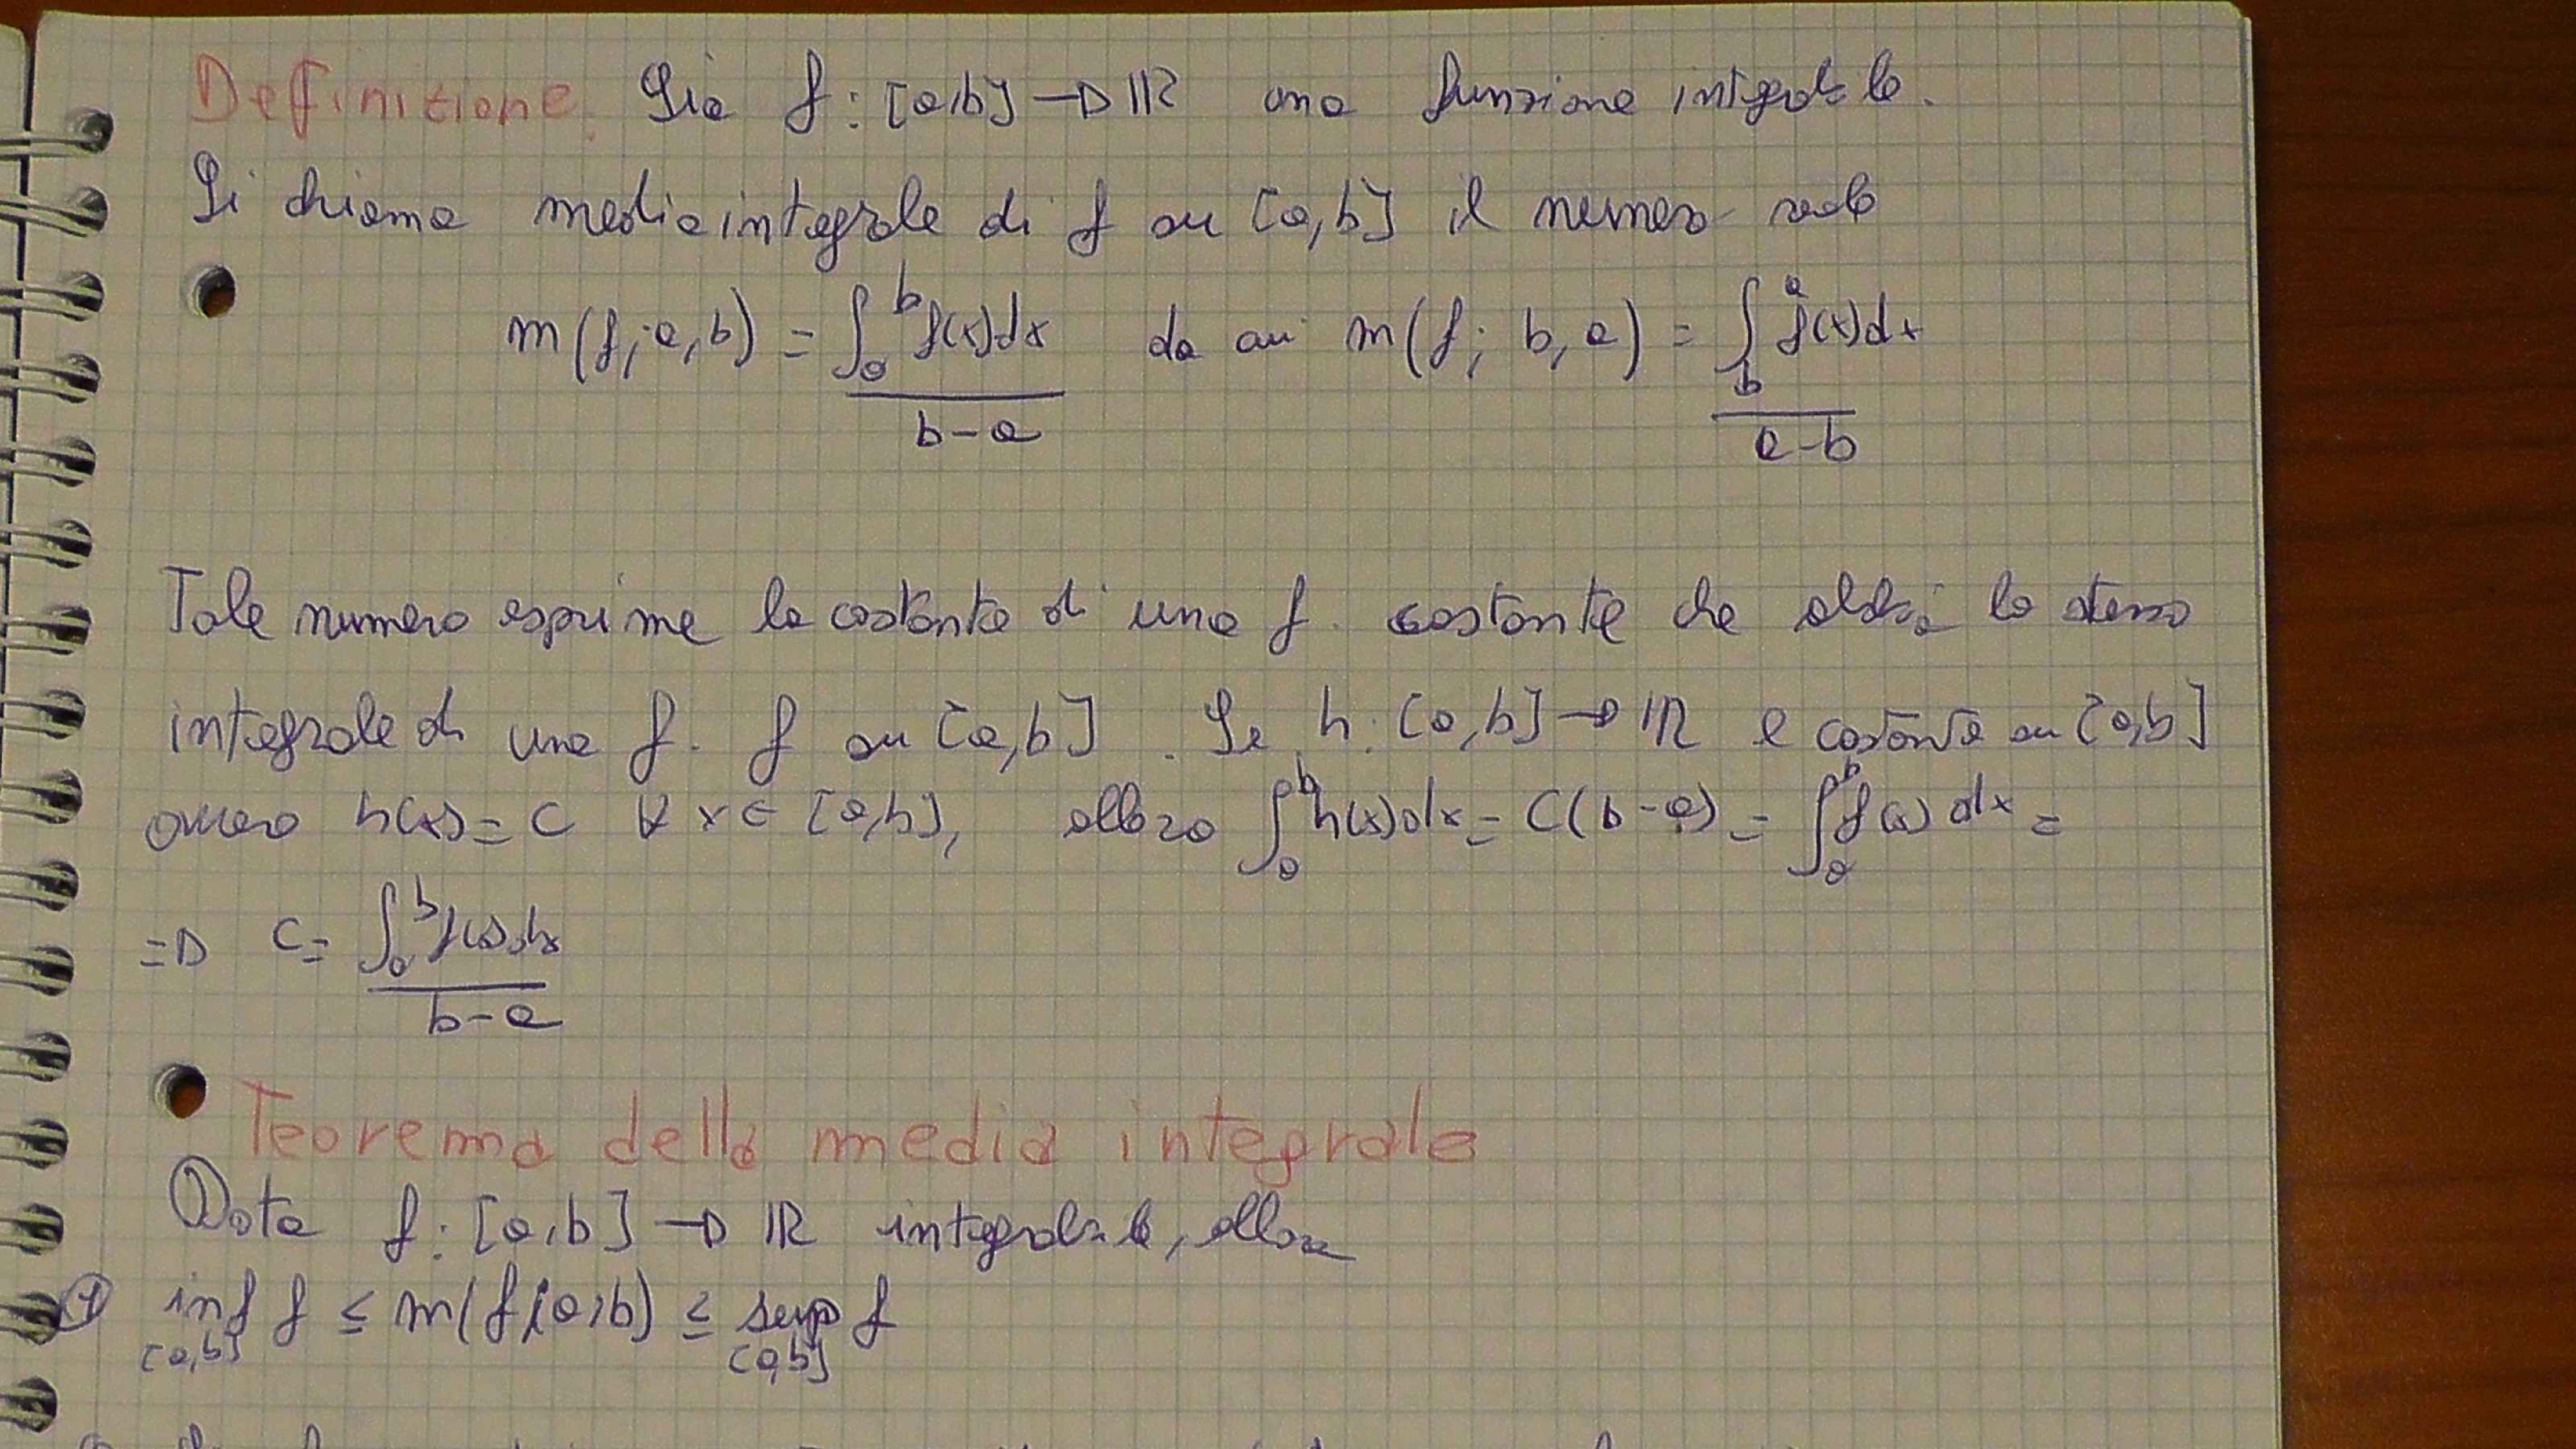 Definizione. Sia f: [a,b] → ℝ una funzione integrabile.
Si chiama media integrale di f su [a,b] il numero reale
m(f; a,b) = ∫_a^b f(x)dx / (b-a) da cui m(f; b,a) = ∫_b^a f(x)dx / (a-b)
Tale numero esprime la costante di una f. costante che abbia lo stesso
integrale di una f. f su [a,b]. Se h: [a,b] → ℝ è costante su [a,b]
ovvero h(x) = C ∀ x ∈ [a,b], allora ∫_a^b h(x)dx = C(b-a) = ∫_a^b f(x)dx =
⇒ C = ∫_a^b f(x)dx / (b-a)
Teorema della media integrale
Data f: [a,b] → ℝ integrabile, allora
① inf_[a,b] f ≤ m(f; a,b) ≤ sup_[a,b] f